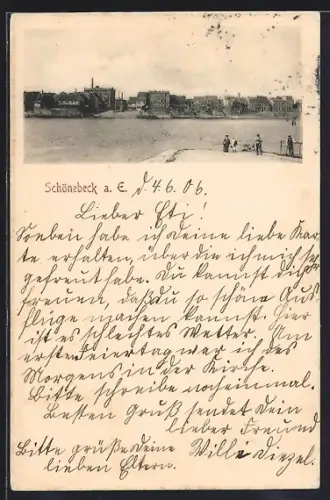 Schönebeck a. E. d. 4.6.06.
Lieber Eti!
Soeben habe ich deine liebe Kar-
te erhalten, über die ich mich sehr
gefreut habe. Du kannst dich
freuen, daß du so schöne Aus-
flüge machen kannst. Hier
ist es schlechtes Wetter. Am
ersten Feiertag war ich des
Morgens in der Kirche.
Bitte schreibe noch einmal.
Besten Gruß sendet dein
lieber Freund
Bitte grüße deine Willi Diezel.
lieben Eltern.